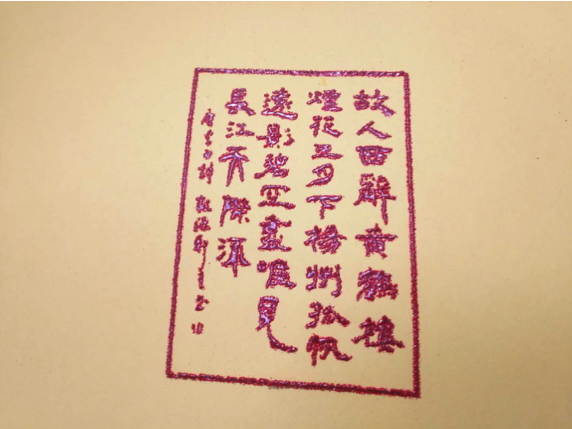 故人西辭黄鶴樓
煙花三月下楊州孤帆
遠影碧空盡唯見
長江天際流
唐李白詩